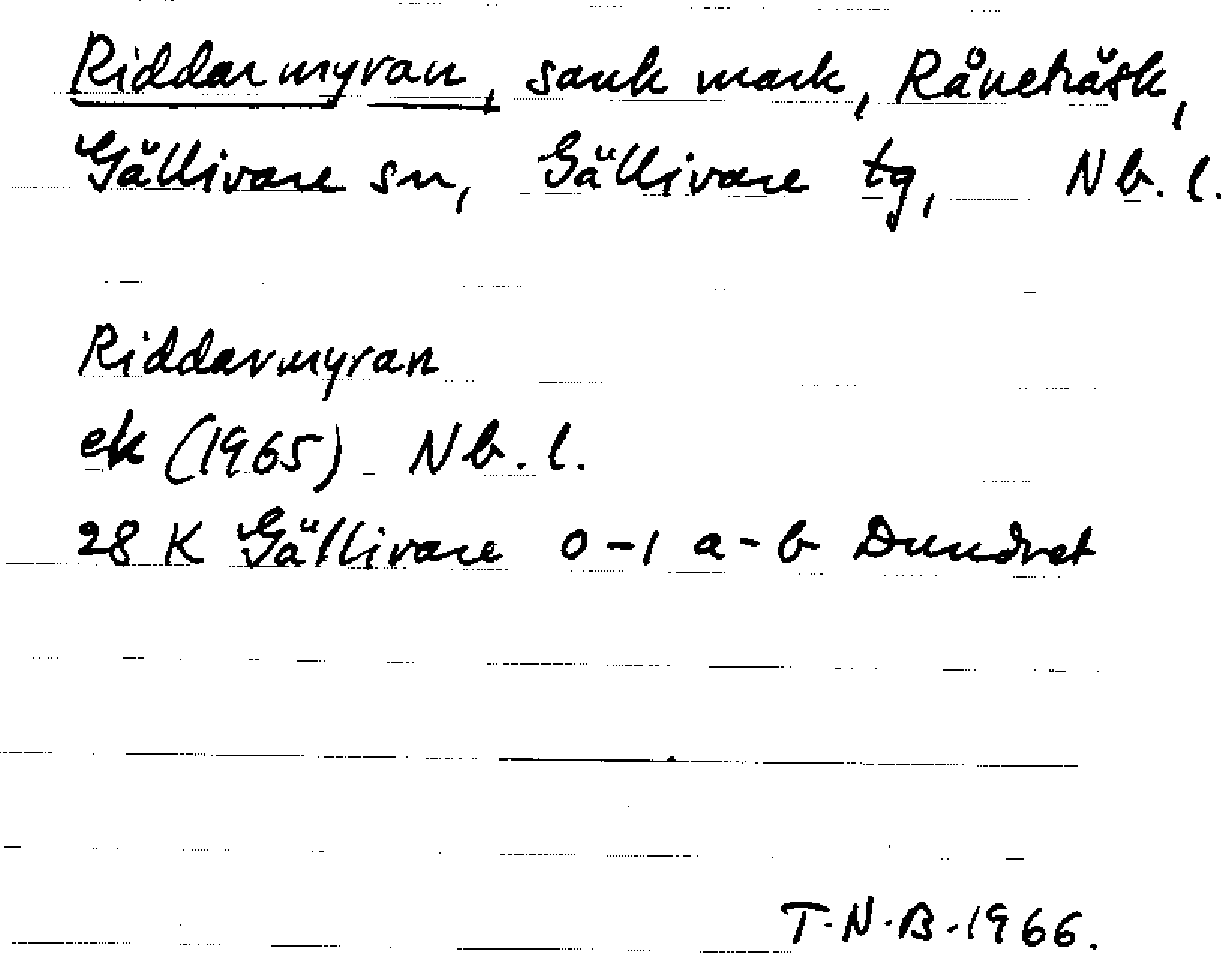 Riddarmyran, sank mark, Råneträsk,
Gällivare sn, Gällivare tg, Nb. l.
Riddarmyran
ek (1965) Nb. l.
28 K Gällivare 0-1 a-b Dundret
T.N.B.1966.